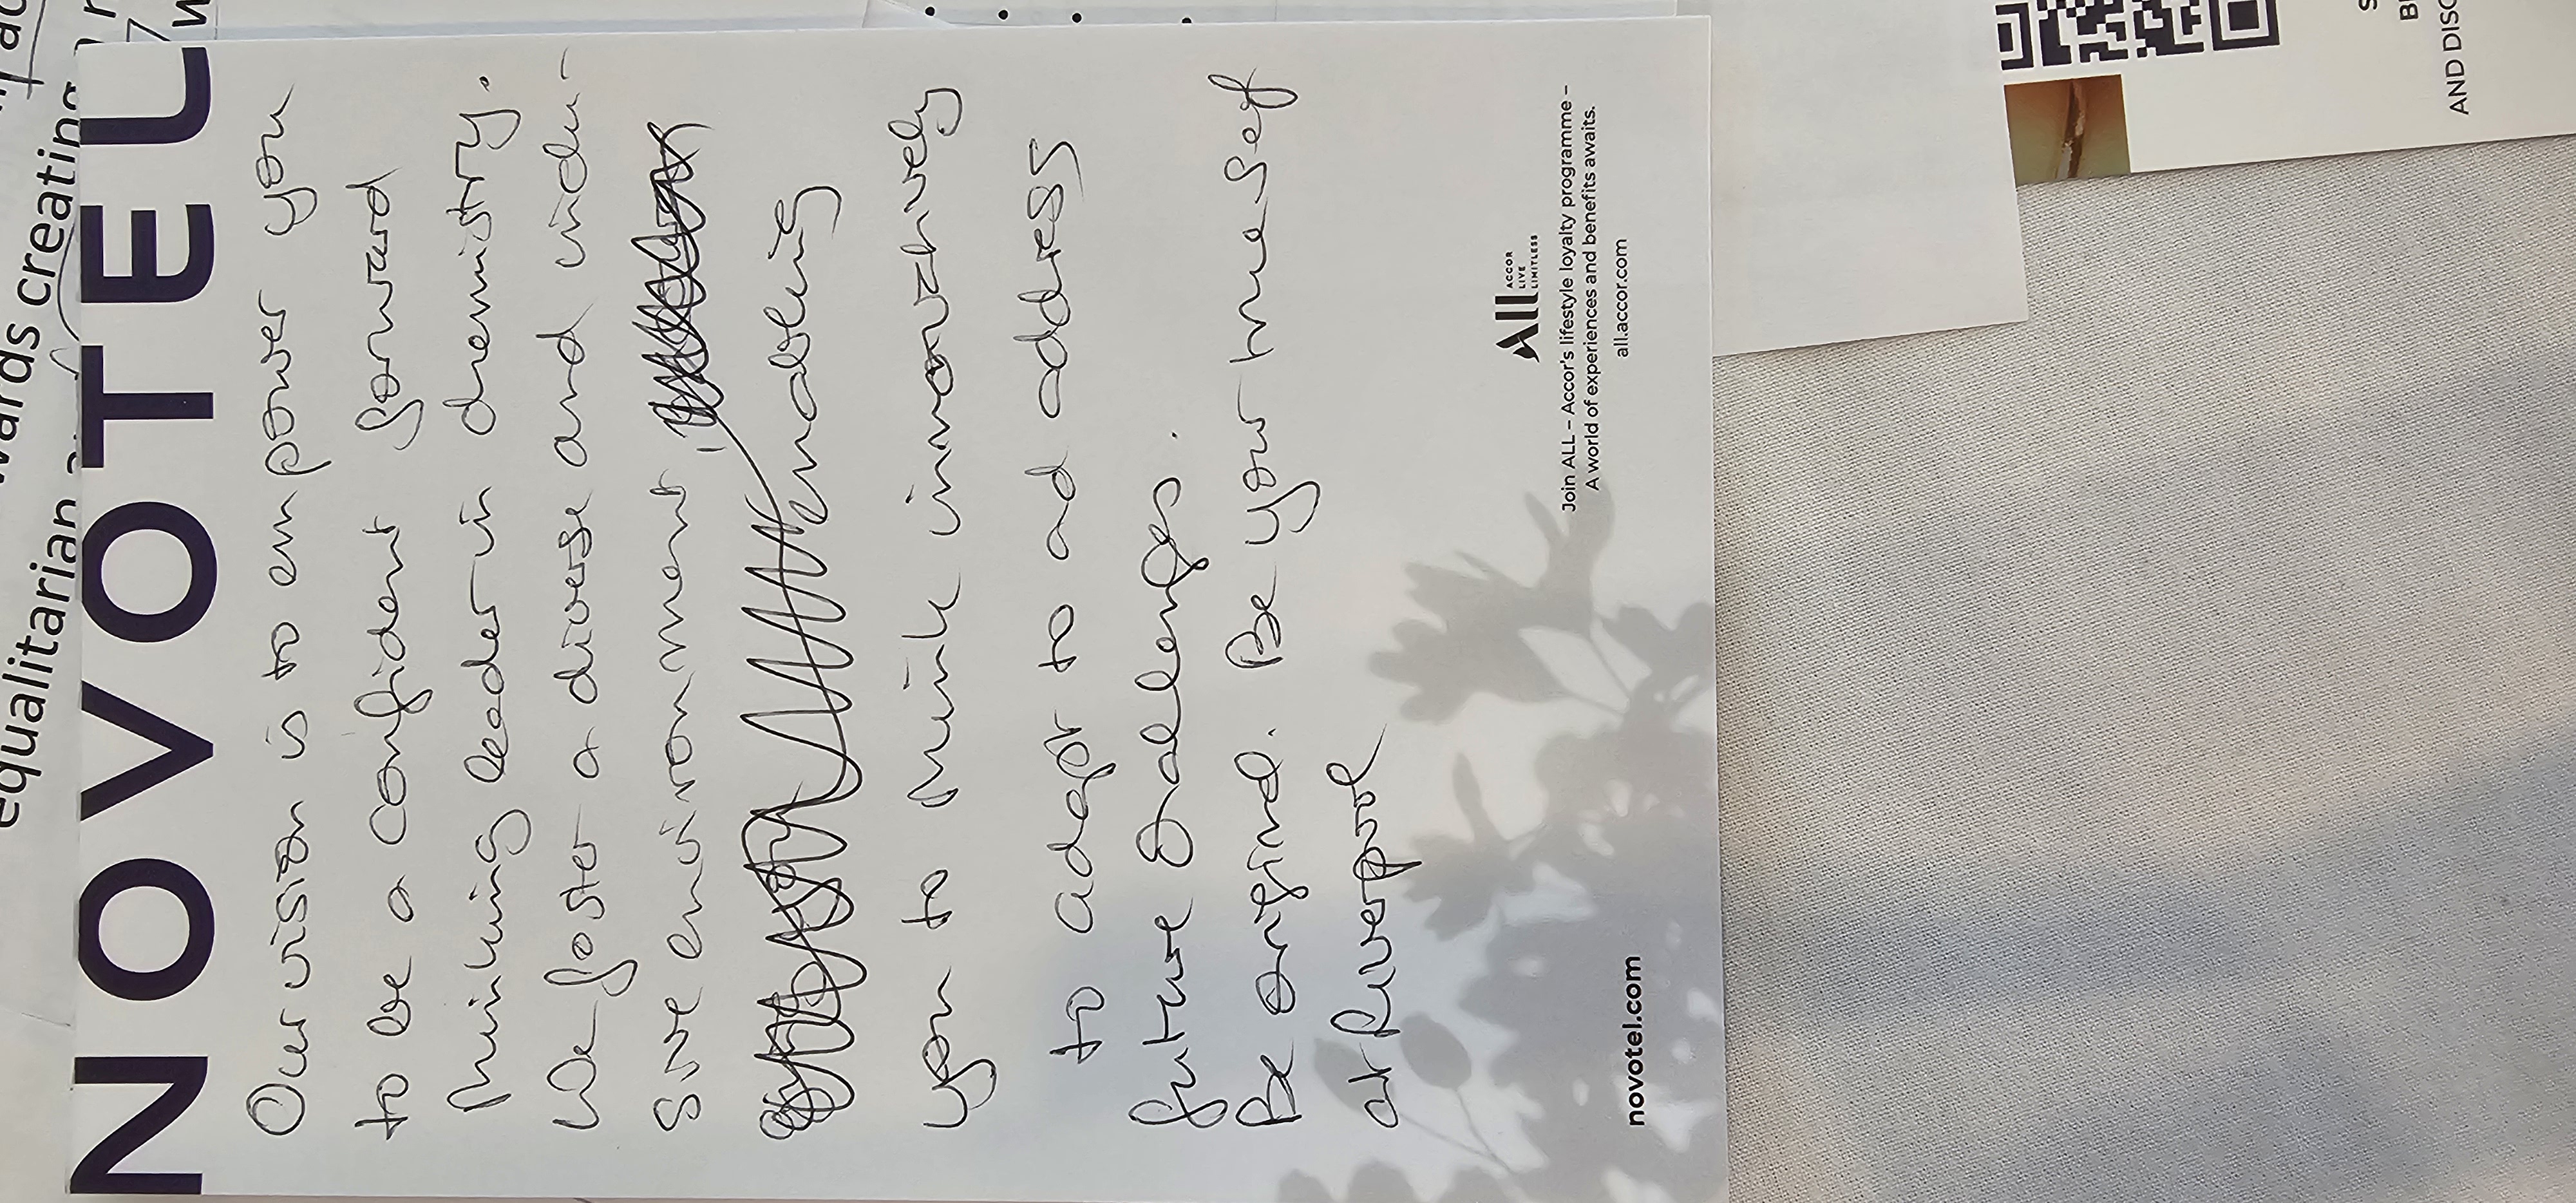 NOVOTEL
Our vision is to empower you
to be a confident forward
thinking leader in chemistry.
We foster a diverse and inclu-
sive environment,
enabling
you to think innovatively
to adapt to ad address
future challenges.
Be original. Be your true self
at Liverpool
novotel.com
All ACCOR
LIVE
LIMITLESS
Join ALL – Accor's lifestyle loyalty programme –
A world of experiences and benefits awaits.
all.accor.com
equalitarian
creating
AND DISC